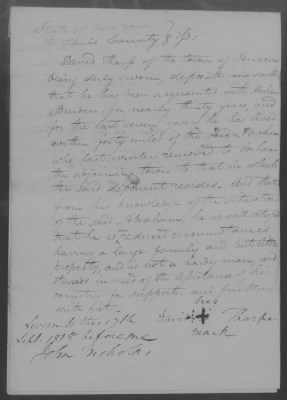 State of New York
County SS:
David Tharp of the town of
being duly sworn, deposeth and saith
that he has been acquainted with Abraham
Burden for nearly thirty years, and
for the last seven years he has lived
within forty miles of the said Abraham
who last winter removed to
the adjoining town to that in which
the said deponent resides. And that
from his knowledge of the situation
of the said Abraham, he is well satisfied
that he is in reduced circumstances
having a large family and but little
property, and is not a hardy man, and
stands in need of the assistance of his
country for support and further
saith not.
his
David + Tharpe
mark
Sworn to this 17th
Sept. 1818 before me
John Nicholas